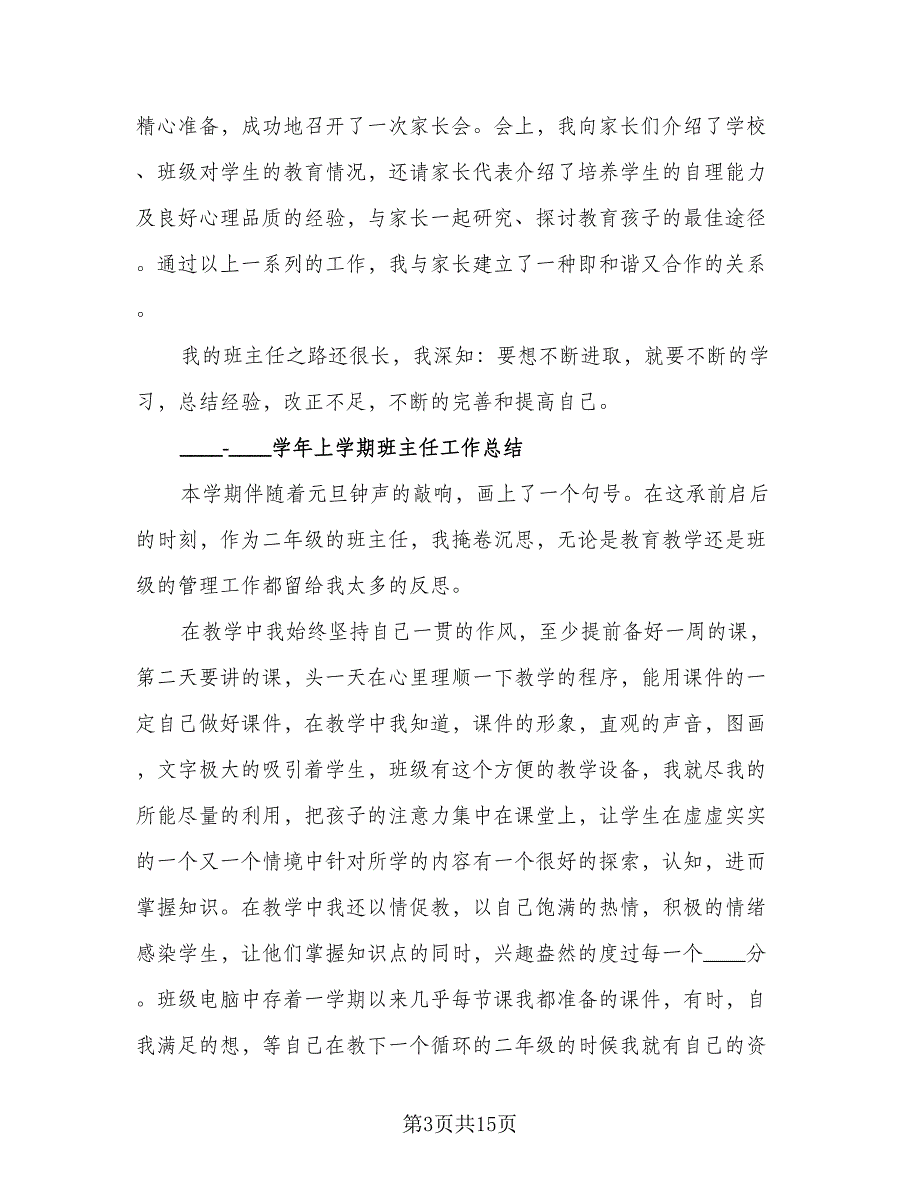 精心准备，成功地召开了一次家长会。会上，我向家长们介绍了学校
、班级对学生的教育情况，还请家长代表介绍了培养学生的自理能力
及良好心理品质的经验，与家长一起研究、探讨教育孩子的最佳途径
。通过以上一系列的工作，我与家长建立了一种即和谐又合作的关系
。
我的班主任之路还很长，我深知：要想不断进取，就要不断的学
习，总结经验，改正不足，不断的完善和提高自己。
____-____学年上学期班主任工作总结
本学期伴随着元旦钟声的敲响，画上了一个句号。在这承前启后
的时刻，作为二年级的班主任，我掩卷沉思，无论是教育教学还是班
级的管理工作都留给我太多的反思。
在教学中我始终坚持自己一贯的作风，至少提前备好一周的课，
第二天要讲的课，头一天在心里理顺一下教学的程序，能用课件的一
定自己做好课件，在教学中我知道，课件的形象，直观的声音，图画
，文字极大的吸引着学生，班级有这个方便的教学设备，我就尽我的
所能尽量的利用，把孩子的注意力集中在课堂上，让学生在虚虚实实
的一个又一个情境中针对所学的内容有一个很好的探索，认知，进而
掌握知识。在教学中我还以情促教，以自己饱满的热情，积极的情绪
感染学生，让他们掌握知识点的同时，兴趣盎然的度过每一个____分
。班级电脑中存着一学期以来几乎每节课我都准备的课件，有时，自
我满足的想，等自己在教下一个循环的二年级的时候我就有自己的资
第3页共15页